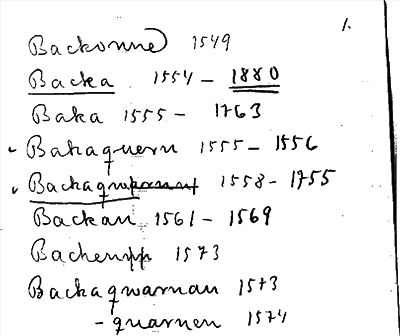 1.
Backonne 1549
Backa 1554 - 1880
Baka 1555 - 1763
Bakaquern 1555 - 1556
1558 - 1755
Backan 1561 - 1569
1573
Backaqwarnan 1573
- quarnen 1574